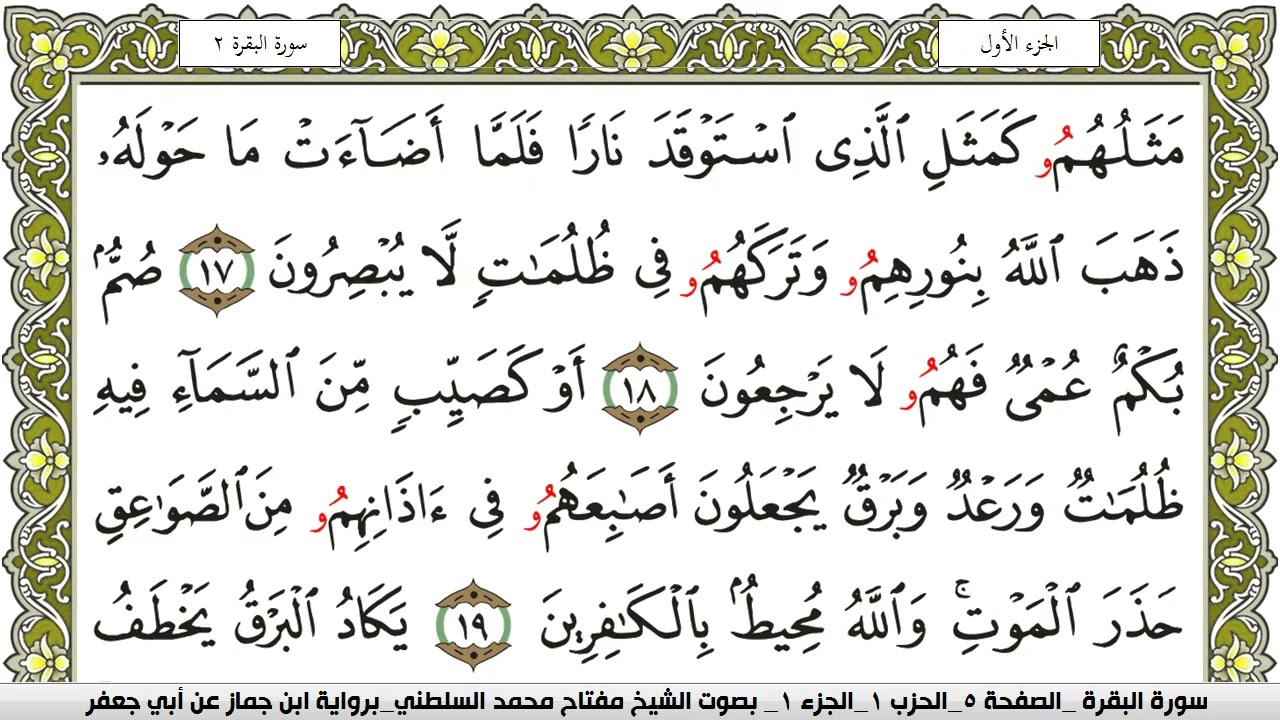 الجزء الأول
سورة البقرة ٢
مَثَلُهُمُو كَمَثَلِ ٱلَّذِى ٱسْتَوْقَدَ نَارًا فَلَمَّا أَضَآءَتْ مَا حَوْلَهُۥ
ذَهَبَ ٱللَّهُ بِنُورِهِمُو وَتَرَكَهُمُو فِى ظُلُمَٰتٍ لَّا يُبْصِرُونَ ١٧ صُمُّۢ
بُكْمٌ عُمْىٌ فَهُمُو لَا يَرْجِعُونَ ١٨ أَوْ كَصَيِّبٍ مِّنَ ٱلسَّمَآءِ فِيهِ
ظُلُمَٰتٌ وَرَعْدٌ وَبَرْقٌ يَجْعَلُونَ أَصَٰبِعَهُمُو فِى ءَاذَانِهِمُو مِنَ ٱلصَّوَٰعِقِ
حَذَرَ ٱلْمَوْتِۚ وَٱللَّهُ مُحِيطُۢ بِٱلْكَٰفِرِينَ ١٩ يَكَادُ ٱلْبَرْقُ يَخْطَفُ
سورة البقرة _الصفحة ٥_الحزب ١_الجزء ١_ بصوت الشيخ مفتاح محمد السلطني_برواية ابن جماز عن أبي جعفر